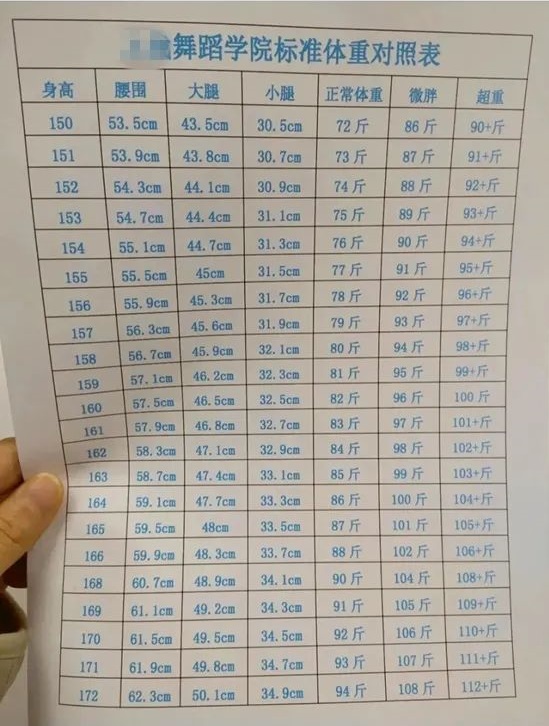 舞蹈学院标准体重对照表
身高 腰围 大腿 小腿 正常体重 微胖 超重
150 53.5cm 43.5cm 30.5cm 72斤 86斤 90+斤
151 53.9cm 43.8cm 30.7cm 73斤 87斤 91+斤
152 54.3cm 44.1cm 30.9cm 74斤 88斤 92+斤
153 54.7cm 44.4cm 31.1cm 75斤 89斤 93+斤
154 55.1cm 44.7cm 31.3cm 76斤 90斤 94+斤
155 55.5cm 45cm 31.5cm 77斤 91斤 95+斤
156 55.9cm 45.3cm 31.7cm 78斤 92斤 96+斤
157 56.3cm 45.6cm 31.9cm 79斤 93斤 97+斤
158 56.7cm 45.9cm 32.1cm 80斤 94斤 98+斤
159 57.1cm 46.2cm 32.3cm 81斤 95斤 99+斤
160 57.5cm 46.5cm 32.5cm 82斤 96斤 100斤
161 57.9cm 46.8cm 32.7cm 83斤 97斤 101+斤
162 58.3cm 47.1cm 32.9cm 84斤 98斤 102+斤
163 58.7cm 47.4cm 33.1cm 85斤 99斤 103+斤
164 59.1cm 47.7cm 33.3cm 86斤 100斤 104+斤
165 59.5cm 48cm 33.5cm 87斤 101斤 105+斤
166 59.9cm 48.3cm 33.7cm 88斤 102斤 106+斤
168 60.7cm 48.9cm 34.1cm 90斤 104斤 108+斤
169 61.1cm 49.2cm 34.3cm 91斤 105斤 109+斤
170 61.5cm 49.5cm 34.5cm 92斤 106斤 110+斤
171 61.9cm 49.8cm 34.7cm 93斤 107斤 111+斤
172 62.3cm 50.1cm 34.9cm 94斤 108斤 112+斤